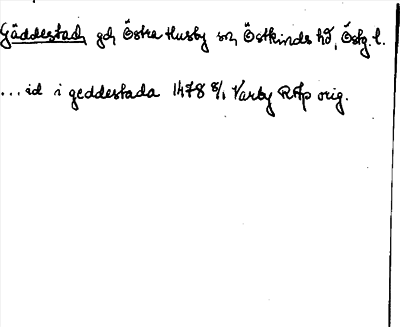 Gäddestad, gd, Östra Husby sn, Östkinds hd, Östg. l.
...id i geddestada 1478 8/1 Varby RAp orig.